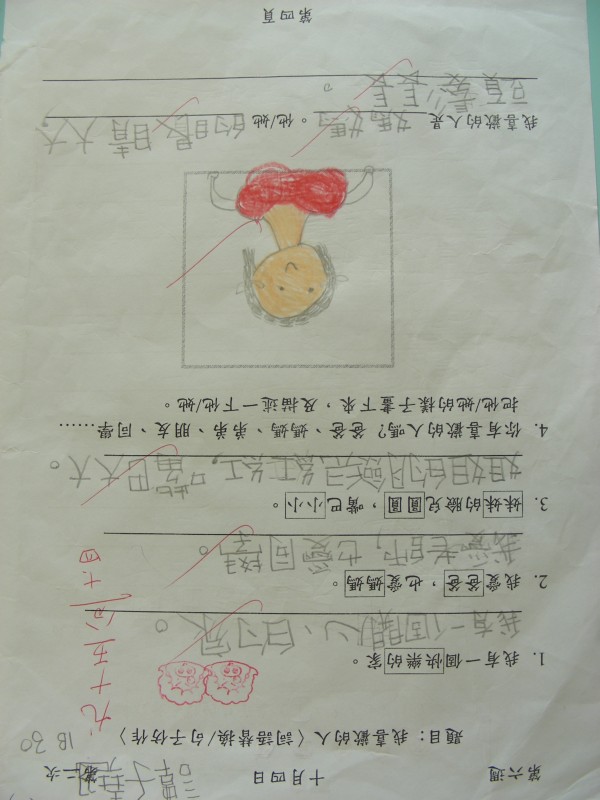 第六週 十月四日 第二次
1B 30
題目：我喜歡的人〈詞語替換/句子仿作〉
1. 我有一個快樂的家。
我有一個開心的家。
2. 我愛爸爸，也愛媽媽。
我愛老師，也愛同學。
3. 妹妹的臉兒圓圓，嘴巴小小。
姐姐的臉兒紅紅，嘴巴大大。
4. 你有喜歡的人嗎？爸爸、媽媽、弟弟、朋友、同學……
把他/她的樣子畫下來，及描述一下他/她。
我喜歡的人是 媽媽 。他/她 的眼睛大大，
頭髮長長。
第四頁
九十五分
十四